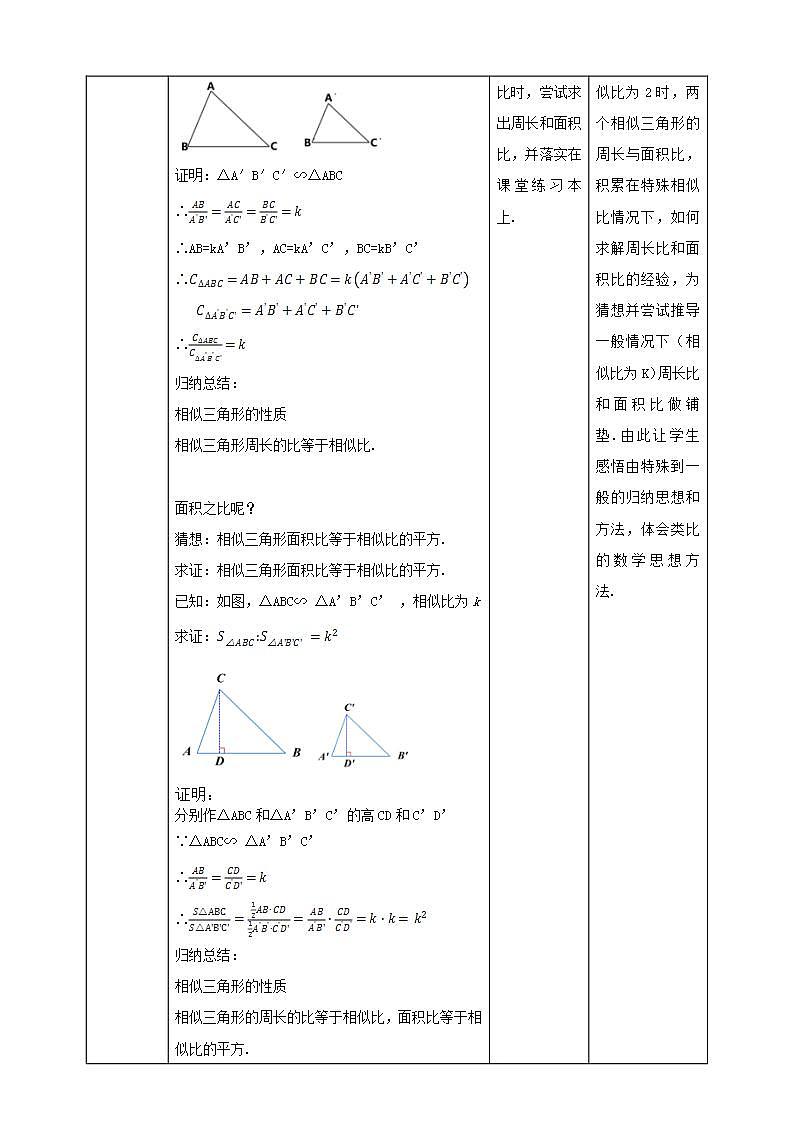 A
B
C
A'
B
C'
证明:△A′B′C′∽△ABC
∴AB/A'B'=AC/A'C'=BC/B'C'=k
∴AB=kA’B’,AC=kA’C’,BC=kB’C’
∴C△ABC=AB+AC+BC=k(A'B'+A'C'+B'C')
C△A'B'C'=A'B'+A'C'+B'C'
∴C△ABC/C△A'B'C'=k
归纳总结:
相似三角形的性质
相似三角形周长的比等于相似比.
面积之比呢?
猜想:相似三角形面积比等于相似比的平方.
求证:相似三角形面积比等于相似比的平方.
已知:如图,△ABC∽ △A’B’C’ ,相似比为 k
求证:S△ABC:S△A'B'C' =k²
C
A
D
B
C'
A'
D'
B'
证明:
分别作△ABC和△A’B’C’的高CD和C’D’
∵△ABC∽ △A’B’C’
∴AB/A'B'=CD/C'D'=k
∴S△ABC/S△A'B'C'=(1/2 AB·CD)/(1/2 A'B'·C'D')=AB/A'B'·CD/C'D'=k·k=k²
归纳总结:
相似三角形的性质
相似三角形的周长的比等于相似比,面积比等于相
似比的平方.
比时,尝试求
出周长和面积
比,并落实在
课堂练习本
上.
似比为 2时,两
个相似三角形的
周长与面积比,
积累在特殊相似
比情况下,如何
求解周长比和面
积比的经验,为
猜想并尝试推导
一般情况下(相
似比为K)周长比
和面积比做铺
垫.由此让学生
感悟由特殊到一
般的归纳思想和
方法,体会类比
的数学思想方
法.